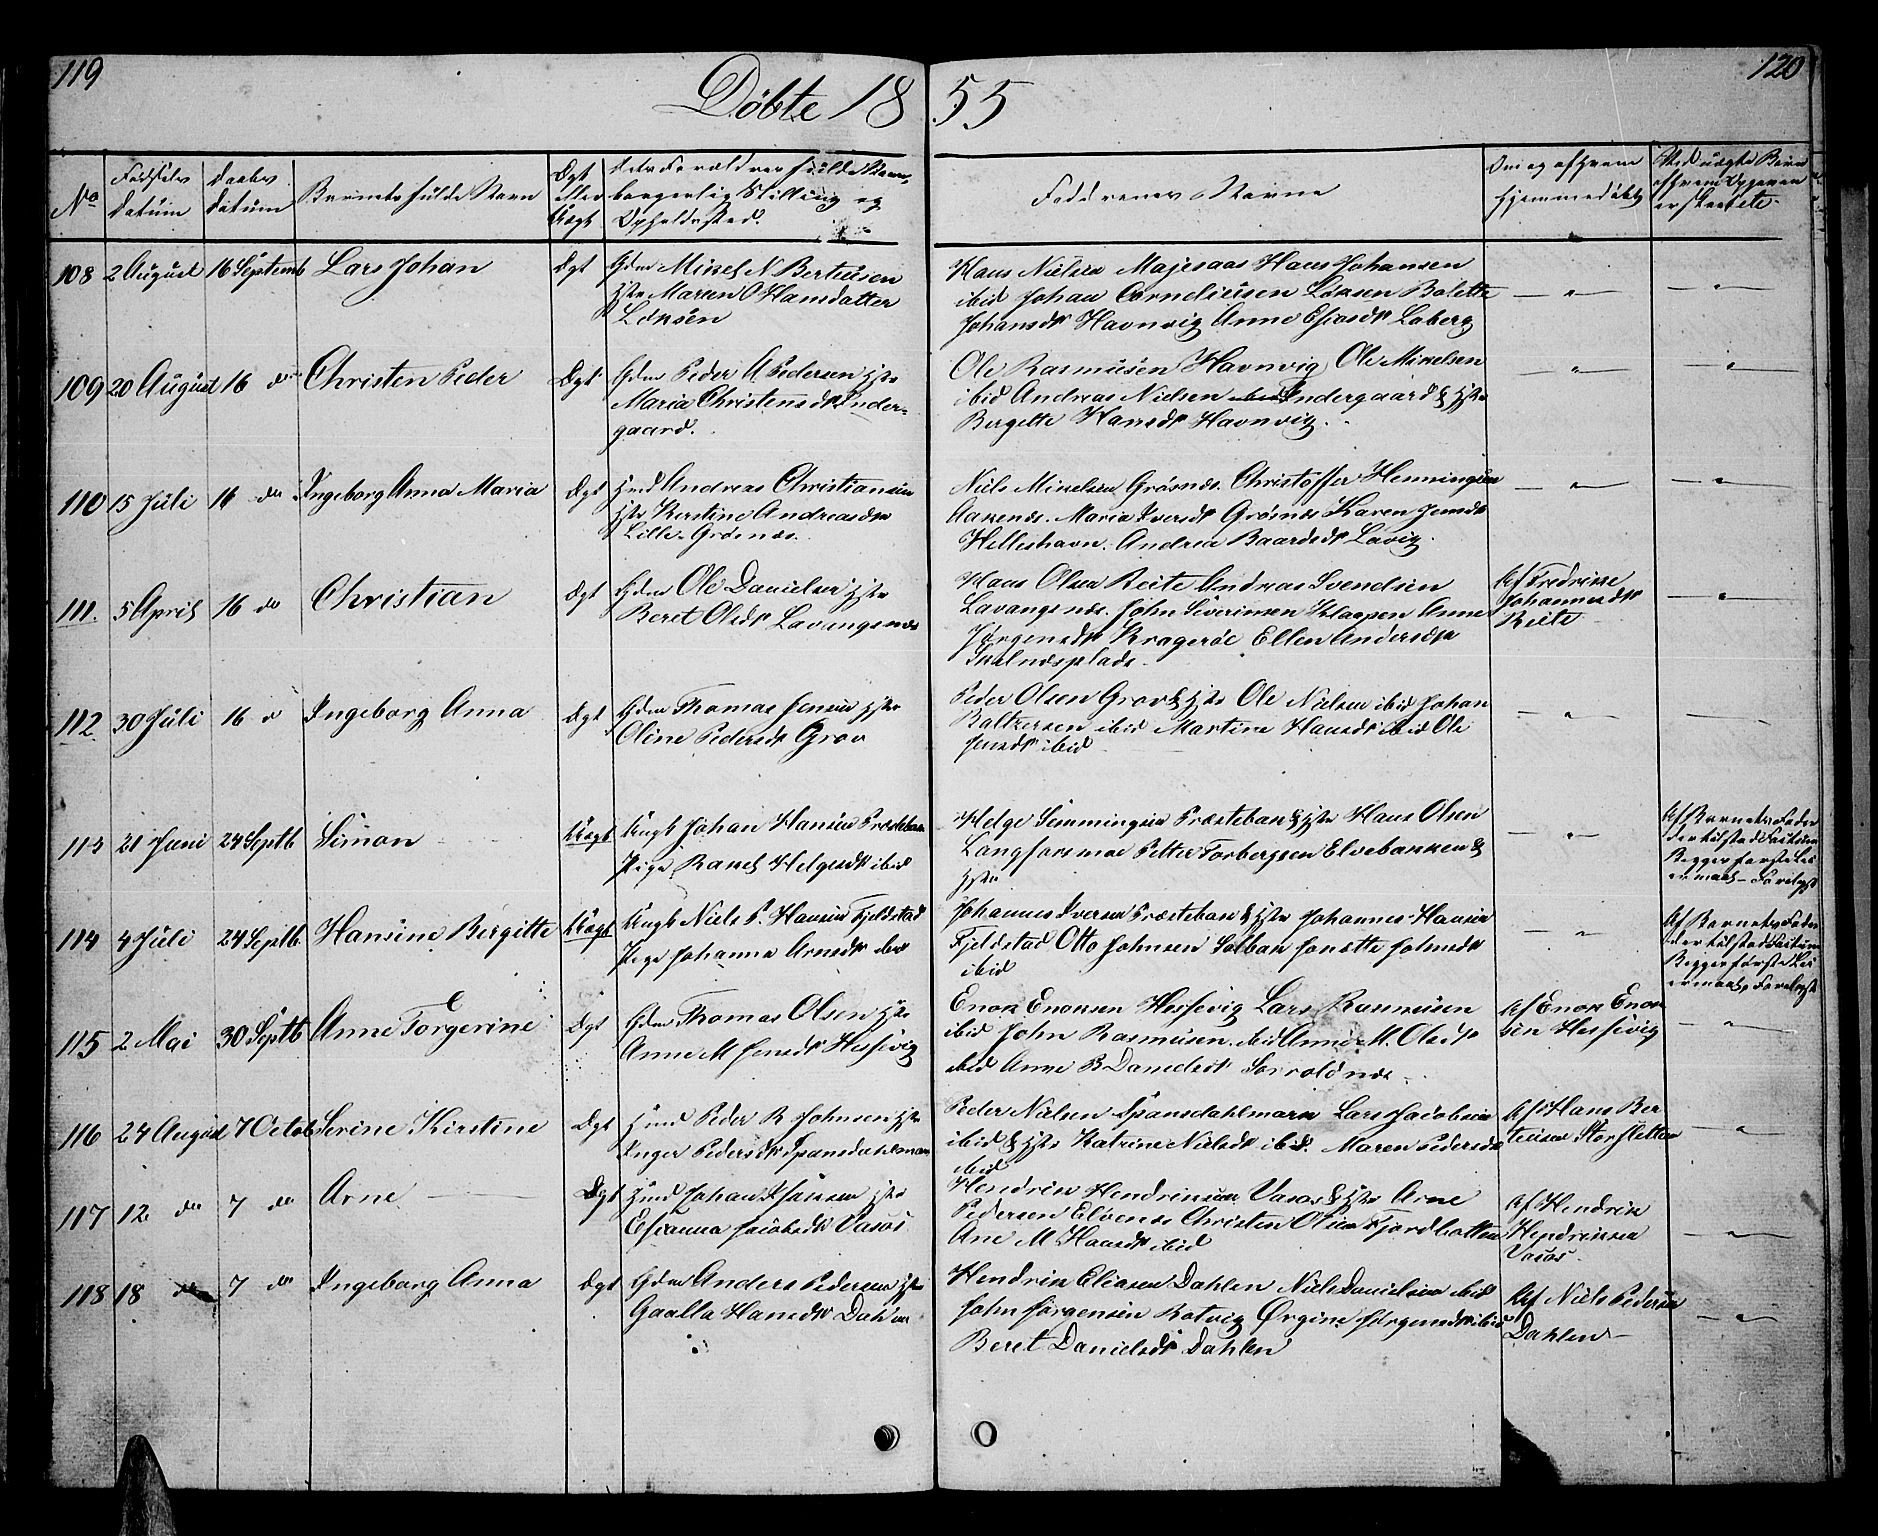 119
120
Döbte 1855
No
Födsels Datum
Daabs Datum
Barnets fulde Navn
Ægt eller Uægt
Forældrenes fulde Navn, borgerlig Stilling og Opholdssted.
Faddernes Navne
Om og af hvem hjemmedöbt
108 2 August 16 Septemb Lars Johan Ægt Gdm Mikel N Berteusen
Hstr Maren O Hansdatter
Löksen
Hans Nielsen Majesaas Hans Johansen
ibid Johan Corneliusen Löksen Bolette
Johansdt Havnvig Anne Esiasdt Laberg
109 20 August 16 do Christen Peder Ægt Gdm Peder A Pedersen Hstr
Maria Christensdt Inder-
gaard.
Ole Rasmusen Havnvig Ole Mikelsen
ibid Andreas Nielsen Indergaard & Hstr
Bergette Hansdt Havnvig.
110 15 Juli 16 do Ingeborg Anna Maria Ægt Hmd Andreas Christiansen
Hstr Kerstine Andreasdtr
Lille-Grösnes.
Niels Mikelsen Grösnes. Christoffer Henningsen
Aakenes. Maria Iversdt Grösnes Karen Jensdt
Helleshavn. Andrea Baardsdt Lavig.
111. 5 April 16 do Christian Ægt Gdm Ole Danielsen Hstr
Beret Olsdt Lavangsnes
Hans Olsen Reite Andreas Svendsen
Lavangsnes. John Siverinsen Klappen Anne
Jörgensdt Krageröe Ellen Andersdtr
Skelnesplads.
Af Fredrikke
Johannesdt
Reite
112 30 Juli 16 d Ingeborg Anna Ægt Gdm Thomas Jensen Hstr
Oline Pedersdt Grov
Peder Olsen Grov & Hstr Ole Nielsen ibid Johan
Baltzersen ibid Martine Hansdt ibid Ole
Jensdt ibid
113 21 Juni 24 Septb Simon Uægt Ungk Johan Hansen Præstebak
Pige Rakel Helgesdt ibid
Helge Simmingsen Præstebak & Hstr Hans Olsen
Langforsmoe Petter Torbergsen Elvebakken &
Hstr
Af Barnets Fader
der tilstod Factum
Begges förste Lei
ermaal – Forelagt
114 4 Juli 24 Septb. Hansine Bergitte Uægt Ungk Niels P. Hansen Fjeldstad
Pige Johanna Arnesdt ibid
Johannes Iversen Præstebak & Hstr Johannes Hansen
Fjeldstad Otto Johnsen Solbak Jonette Johnsdt
ibid
Af Barnets Fader
der tilstod Factum
Begges förste Lei
ermaal, Forelagt
115 2 Mai 30 Septb. Anne Torgerine Ægt Gdm Thomas Olsen Hstr
Anne M Jensdt Hessevig
Enok Enoksen Hessevig Lars Rasmusen
ibid John Rasmusen ibid Anne M. Olsdt
ibid Anne B Danielsdt Sorroldnes
Af Enok Enok
sen Hessevig
116 24 August 7 Octob Serine Kirstine Ægt Hmd Peder R Johnsen Hstr
Inger Pedersdt Spansdahlmark
Peder Nielsen Spansdahlmark Lars Jacobsen
ibid & Hstr Katrine Nielsdt ibid. Maren Pedersdt
ibid
Af Hans Ber
teusen Storsletten
117 12 do 7 do Arne Ægt Hmd Johan Hstr
Esianna Jacobsdt Vasos
Hendrik Hendriksen Vasos & Hstr Arne
Pedersen Elvenes Christen Olsen Fjordbotten
Ane M Hansdt ibid
Af Hendrik
Hendriksen
Vasos.
118 18 do 7 do Ingeborg Anna Ægt Gdm Anders Pedersen Hstr
Gaalla Hansdt Dahlen
Hendrik Eliasen Dahlen Niels Danielsen ibid
John Jörgensen Rotvig Örgine Jörgensdt ibid
Beret Danielsdt Dahlen
Af Niels Pedersen
Dahlen